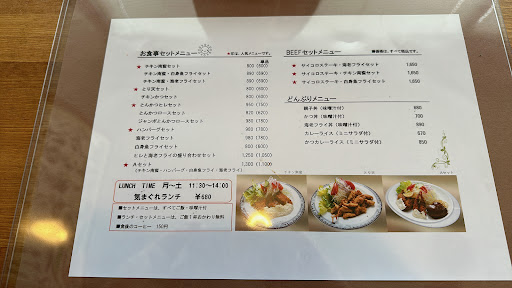 お食事セットメニュー
★印は、人気メニューです。
単品
★ チキン南蛮セット 800 (600)
チキン南蛮・白身魚フライセット 890 (690)
チキン南蛮・海老フライセット
★ とり天セット
チキンかつセット
★ とんかつヒレセット 950 (750)
とんかつロースセット
ジャンボとんかつロースセット
★ ハンバーグセット
海老フライセット
白身魚フライセット
ヒレと海老フライの盛り合わせセット 1,250 (1,050)
★ Aセット 1,300 (1,100)
(チキン南蛮・ハンバーグ・白身魚フライ・海老フライ)
LUNCH TIME 月～土 11:30～14:00
気まぐれランチ ¥680
■セットメニューは、すべてご飯・味噌汁付
■ランチ・セットメニューは、ご飯1杯おかわり無料
■食後のコーヒー 150円
BEEFセットメニュー
★ サイコロステーキ・海老フライセット 1,650
★ サイコロステーキ・チキン南蛮セット 1,650
★ サイコロステーキ・白身魚フライセット 1,650
どんぶりメニュー
親子丼（味噌汁付） 680
かつ丼（味噌汁付）
海老フライ丼（味噌汁付）
カレーライス（ミニサラダ付） 670
かつカレーライス（ミニサラダ付） 850
チキン南蛮
とり天
Aセット